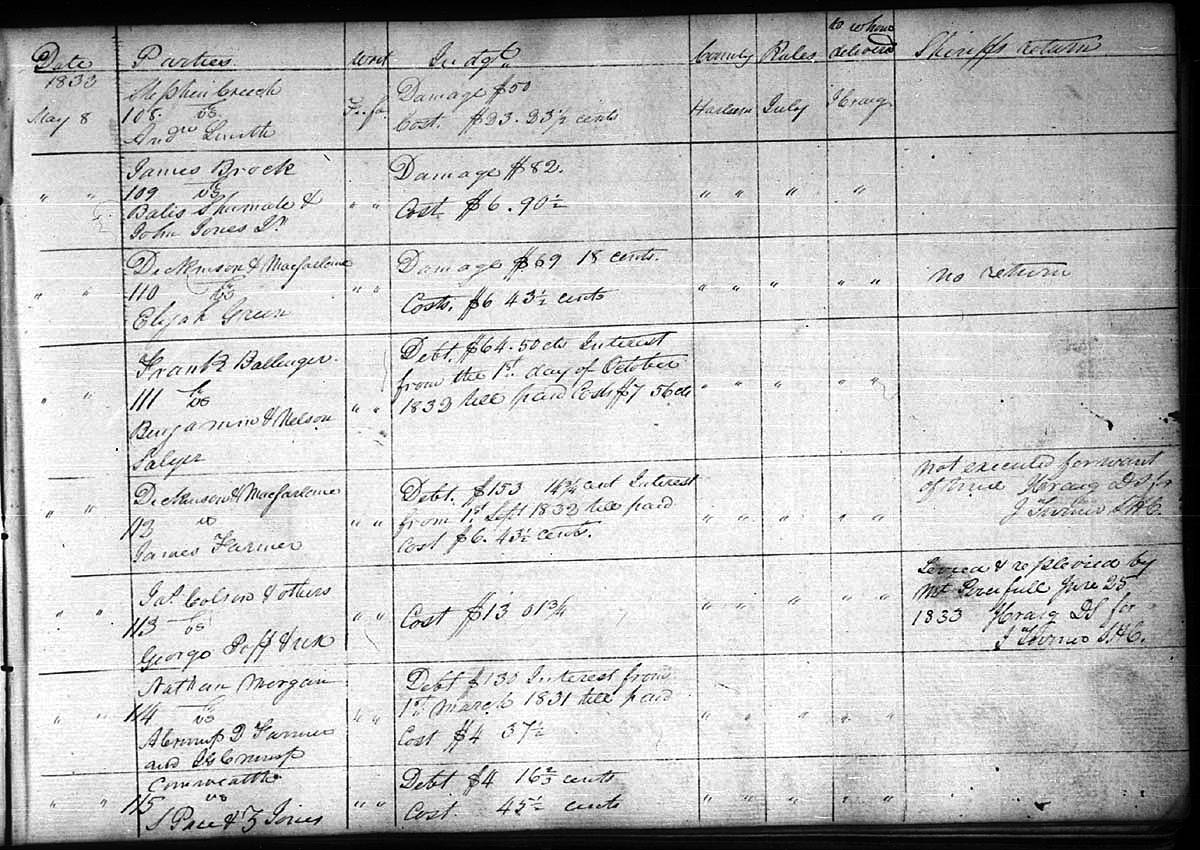 Date Parties Writ Judgt County Rules to whom delivered Sheriffs return
1833
Stephen Creech Damage $50
May 8 108 vs Fi. fa. Cost. $23. 23½ cents Harlan July H Craig
Andrw Smith
James Brock Damage $82.
" " 109 vs " " " " " "
Balis Shumate & Cost $6. 90½
John Jones Dr
Dickinson & Macfarlane Damage $69 18 cents.
" " 110 vs " " " " " no return
Elijah Green Costs. $6 43½ cents
Frank R Ballenger Debt. $64.50 cts Interest
from the 1st day of October
" " 111 vs " " 1832 till paid Costs $7 56 cts " " " " "
Benjamin & Nelson
Salyer
Dickinson & Macfarlane Debt. $153 14¾ cent Interest not executed for want
" " 112 vs " " from 1st Sept 1832 till paid " " " " " of time H Craig DS for
James Farmer Cost $6. 43½ cents. J Turner S.H.C.
Jas. Colson & others Levied & replevied by
" " 113 vs " " Cost $13 01¾ " " " " " June 25
George 1833 H Craig DS for
J Turner S.H.C.
Nathan Morgan Debt $130 Interest from
" " 114 vs " " 1st March 1831 till paid " " " " "
A Crump D Farmer Cost $4 37½
and Crump
Commwealth Debt $4 16⅔ cents
" " 115 vs " " " " " " "
S Pace & Z Jones Cost. 45½ cents